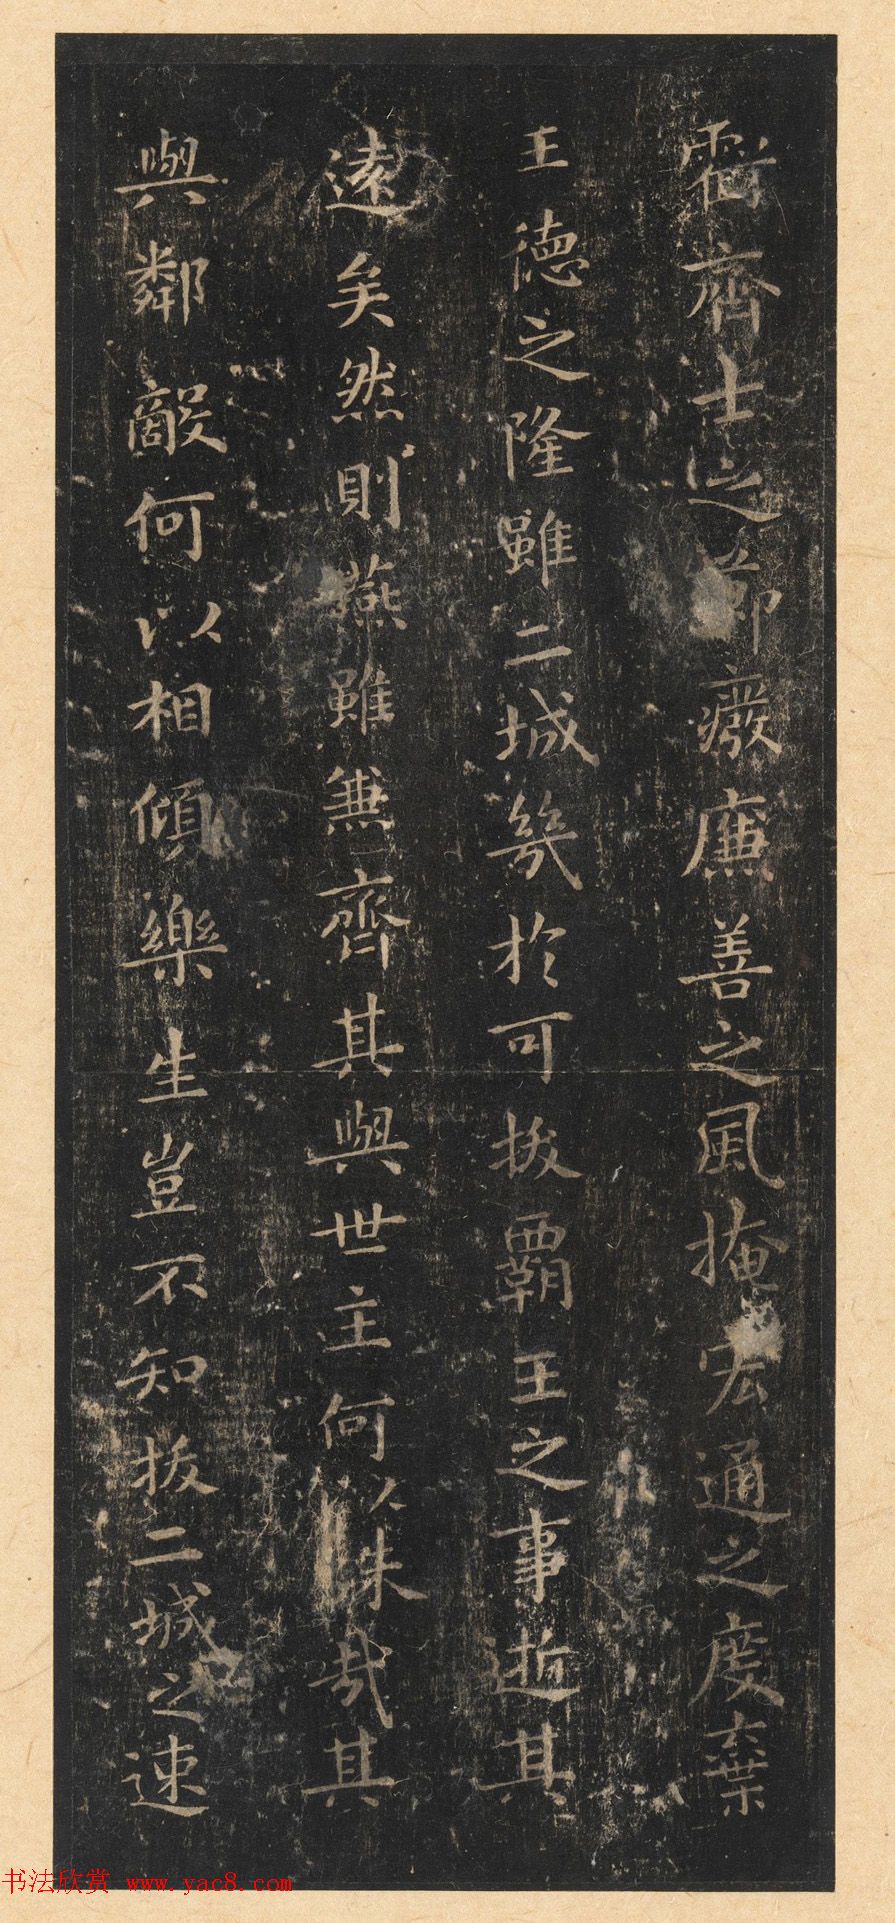 虧齊士之節廢廉善之風掩宏通之度棄
王德之隆雖二城幾於可拔霸王之事逝其
遠矣然則燕雖兼齊其與世主何以殊哉其
與鄰敵何以相傾樂生豈不知拔二城之速
书法欣赏 www.yac8.com